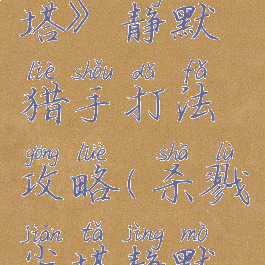 塔》 静默
liè shǒu dǎ fǎ
猎手打法
gōng lüè shā lù
攻略(杀戮
jiān tǎ jìng mò
尖塔静默